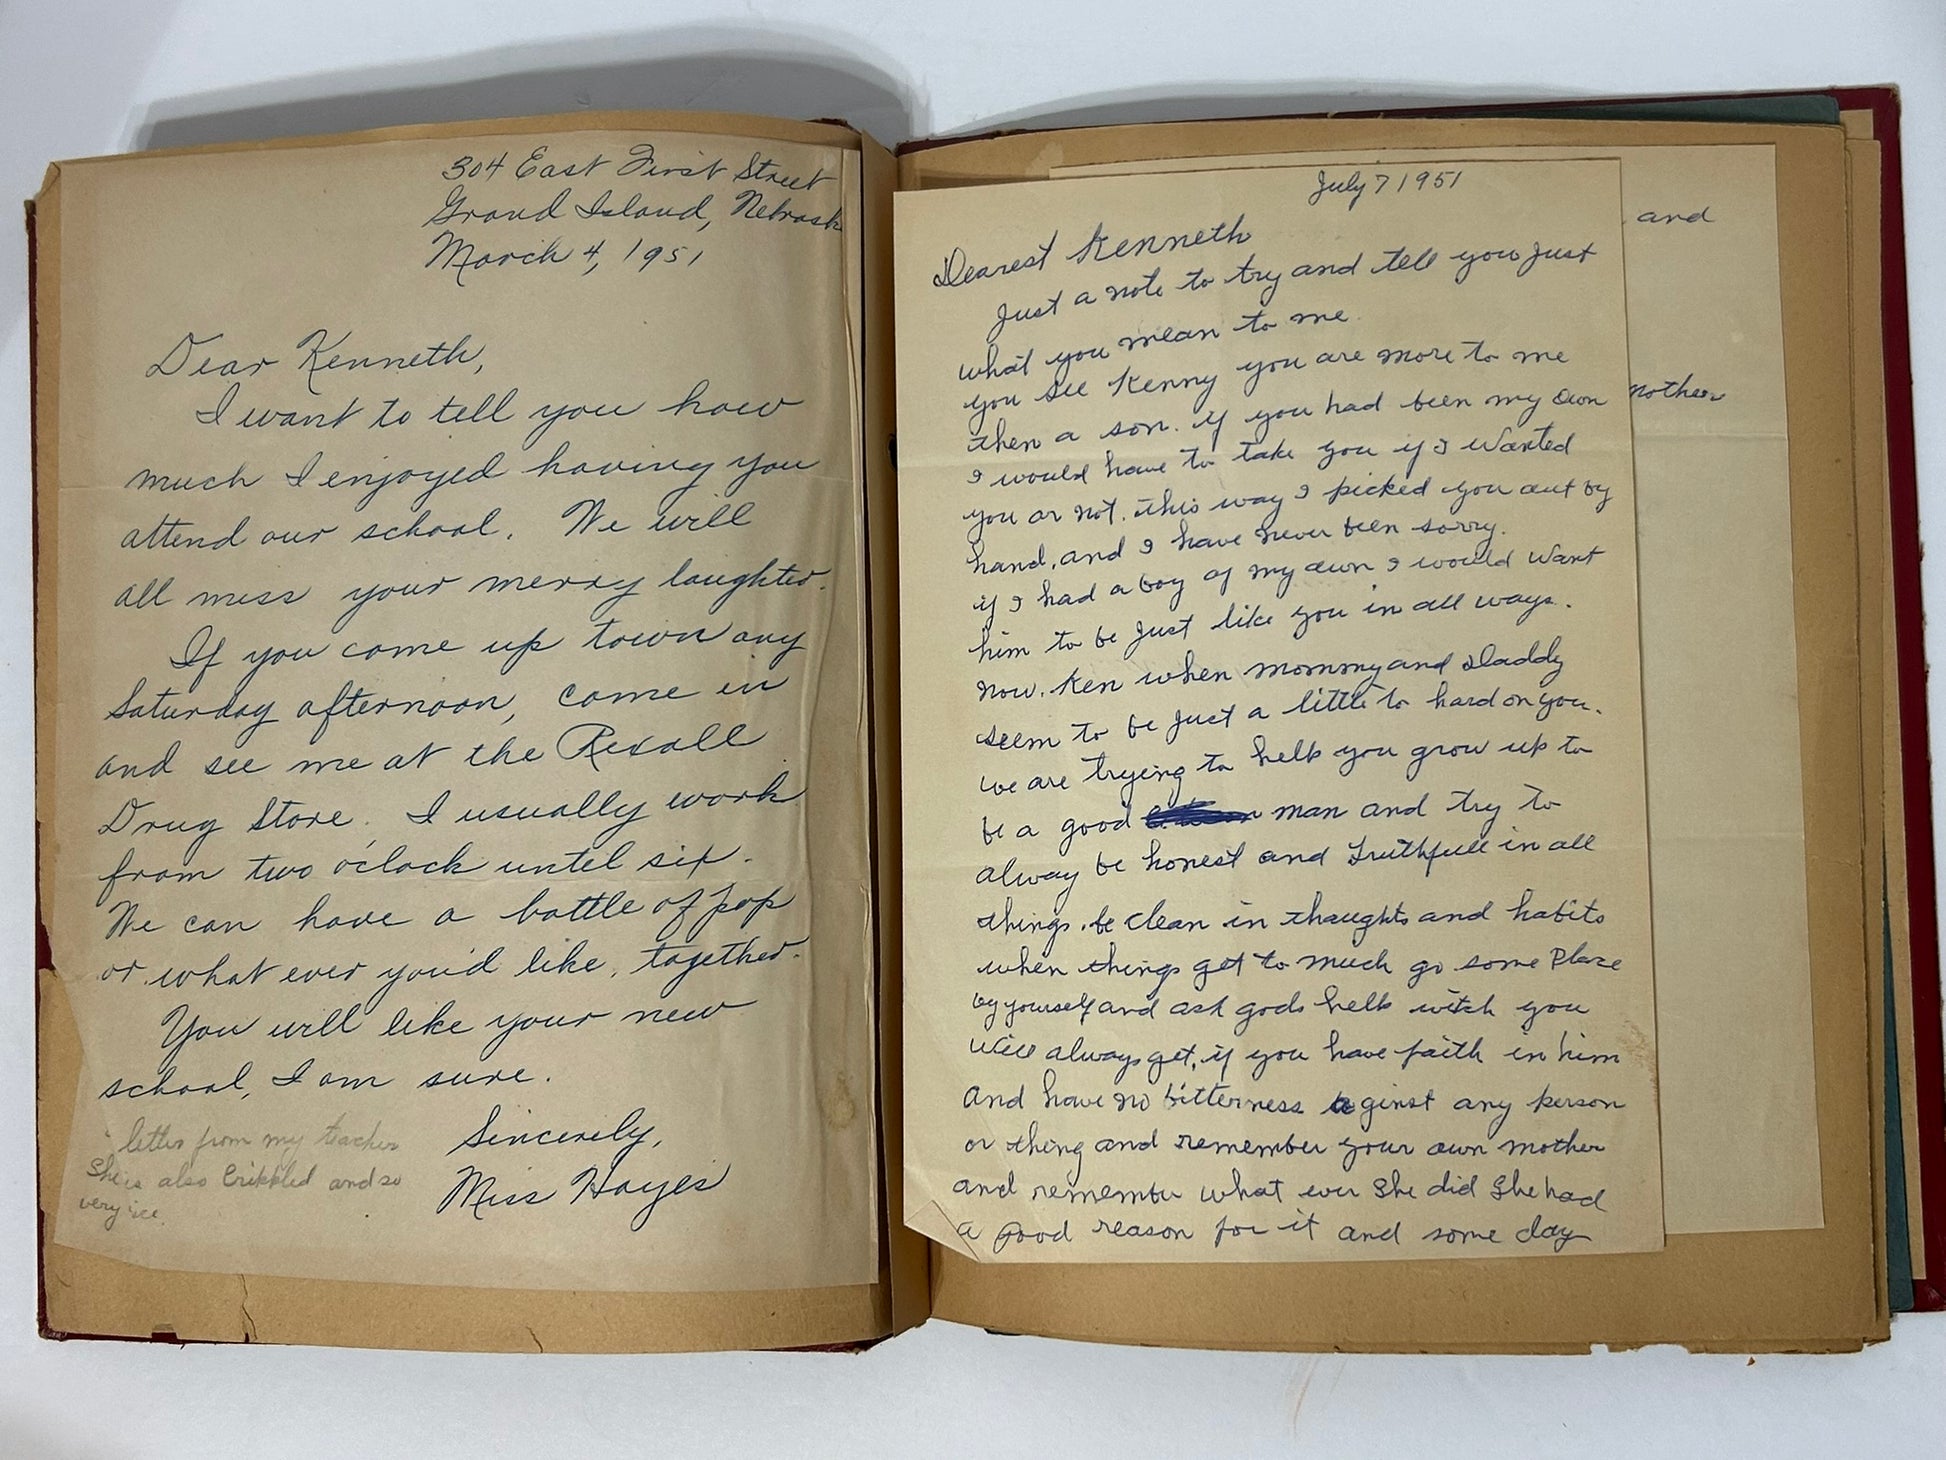 304 East First Street
Grand Island, Nebrask
March 4, 1951
Dear Kenneth,
I want to tell you how
much I enjoyed having you
attend our school. We will
all miss your merry laughter.
If you come up town any
Saturday afternoon, come in
and see me at the Rexall
Drug Store. I usually work
from two o'clock until six.
We can have a bottle of pop
or what ever you'd like, together.
You will like your new
school, I am sure.
Sincerely,
Miss Hayes
letter from my teacher
She is also Crippled and so
very
July 7 1951
Dearest Kenneth
Just a note to try and tell you just
what you mean to me.
you see Kenny you are more to me
then a son. if you had been my own
I would have to take you if I wanted
you or not. this way I picked you out by
hand, and I have never been sorry.
if I had a boy of my own I would want
him to be just like you in all ways.
now. Ken when mommy and Daddy
seem to be just a little to hard on you.
we are trying to help you grow up to
be a good man and try to
alway be honest and truthfull in all
things. be clean in thoughts and habits
when things get to much go some place
by yourself and ask gods help witch you
will always get, if you have faith in him
and have no bitterness aginst any person
or thing and remember your own mother
and remember what ever She did She had
a good reason for it and some day
and
mother